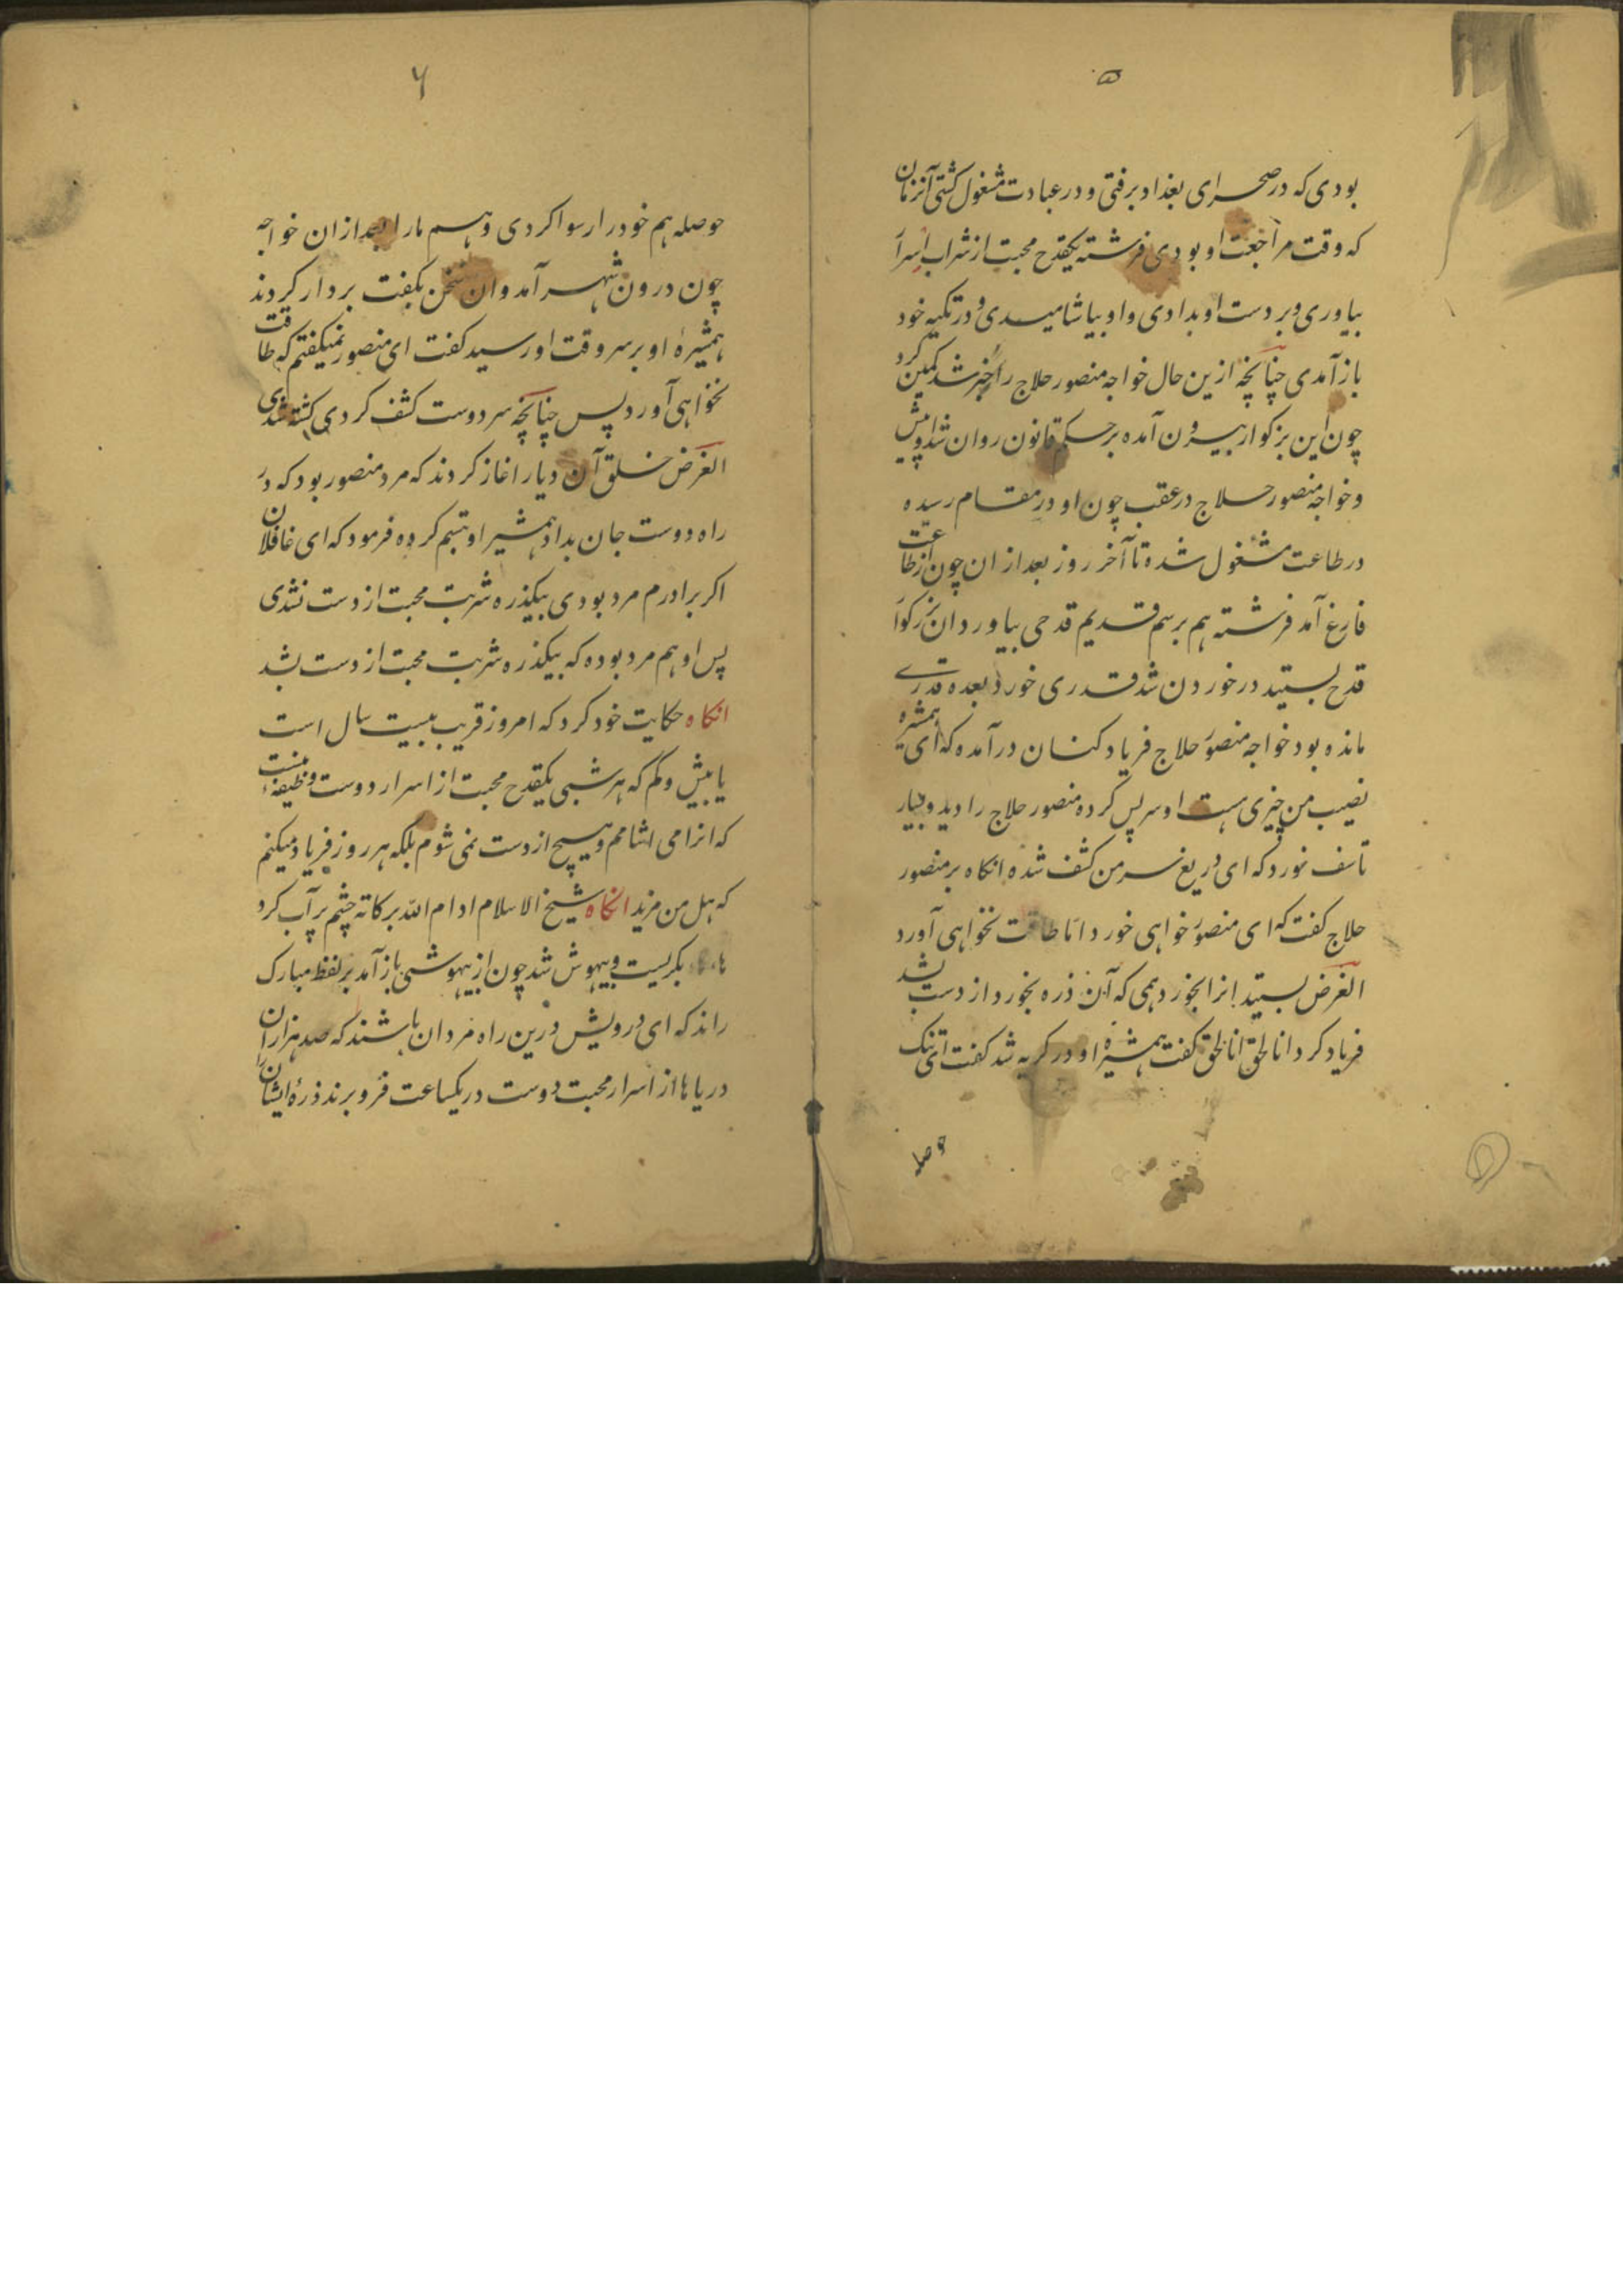 ۵
بودی که در صحرای بغداد برفتی و در عبادت مشغول کشتی آنزمان
که وقت مراجعت او بودی فرشته یکقدح محبت از شراب اسرا
بیاوری و بر دست او بدادی و او بیاشامیدی و در تکیه خود
باز آمدی چنانچه ازین حال خواجه منصور حلاج را خبر شد کمین کرد
چون این بزکوار بیرون آمده بر حکم قانون روان شد او پیش
و خواجه منصور حلاج در عقب چون او در مقام رسیده
در طاعت مشغول شده تا آخر روز بعد ازان چون از طاعت
فارغ آمد فرشته هم برسم قدیم قدحی بیاورد ان بزرکوا
قدح بستید در خوردن شد قدری خورد بعده قدرے
مانده بود خواجه منصور حلاج فریاد کنان در آمده که ای همشیره
نصیب من چیزی هست او سر پس کرده منصور حلاج را دید و بسیار
تاسف خورد که ای دریغ سر من کشف شده انکاه بر منصور
حلاج کفت که ای منصور خواهی خورد اما طاقت نخواهی آورد
الغرض بستید انرا بخورد همی که آن ذره بخورد از دست بشد
فریاد کرد انا لحق انا لحق کفت همشیره او در کریه شد کفت ای تنک
حوصله
۶
حوصله هم خود را رسوا کردی و هم مارا بعد ازان خواجه
چون درون شهر آمد و ان سخن بکفت بر دار کردند
همشیرهٔ او بر سر وقت او رسید کفت ای منصور نمیکفتم که طاقت
نخواهی آورد پس چنانچه سر دوست کشف کردی کشته شدی
الغرض خلق آن دیار اغاز کردند که مرد منصور بود که در
راه دوست جان بداد همشیر او تبسم کرده فرمود که ای غافلان
اکر برادرم مرد بودی بیکذره شربت محبت از دست نشدی
پس او هم مرد بوده که بیکذره شربت محبت از دست بشد
انکاه حکایت خود کرد که امروز قریب بیست سال است
یا بیش و کم که هر شبی یکقدح محبت از اسرار دوست وظیفهٔ منست
که انرا می اشامم و هیچ از دست نمی شوم بلکه هر روز فریاد میکنم
که هل من مزید انکاه شیخ الاسلام ادام الله برکاته چشم پر آب کرد
بکریست و بیهوش شد چون از بیهوشی باز آمد بر لفظ مبارک
راند که ای درویش درین راه مردان باشند که صد هزاران
دریاها از اسرار محبت دوست در یکساعت فرو برند ذرهٔ ایشان را